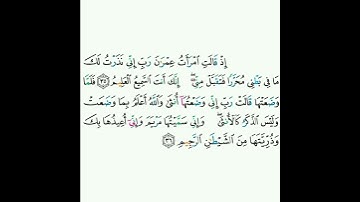 إِذْ قَالَتِ ٱمْرَأَتُ عِمْرَٰنَ رَبِّ إِنِّى نَذَرْتُ لَكَ
مَا فِى بَطْنِى مُحَرَّرًا فَتَقَبَّلْ مِنِّىٓ ۖ إِنَّكَ أَنتَ ٱلسَّمِيعُ ٱلْعَلِيمُ ﴿٣٥﴾ فَلَمَّا
وَضَعَتْهَا قَالَتْ رَبِّ إِنِّى وَضَعْتُهَآ أُنثَىٰ وَٱللَّهُ أَعْلَمُ بِمَا وَضَعَتْ
وَلَيْسَ ٱلذَّكَرُ كَٱلْأُنثَىٰ ۖ وَإِنِّى سَمَّيْتُهَا مَرْيَمَ وَإِنِّىٓ أُعِيذُهَا بِكَ
وَذُرِّيَّتَهَا مِنَ ٱلشَّيْطَٰنِ ٱلرَّجِيمِ ﴿٣٦﴾